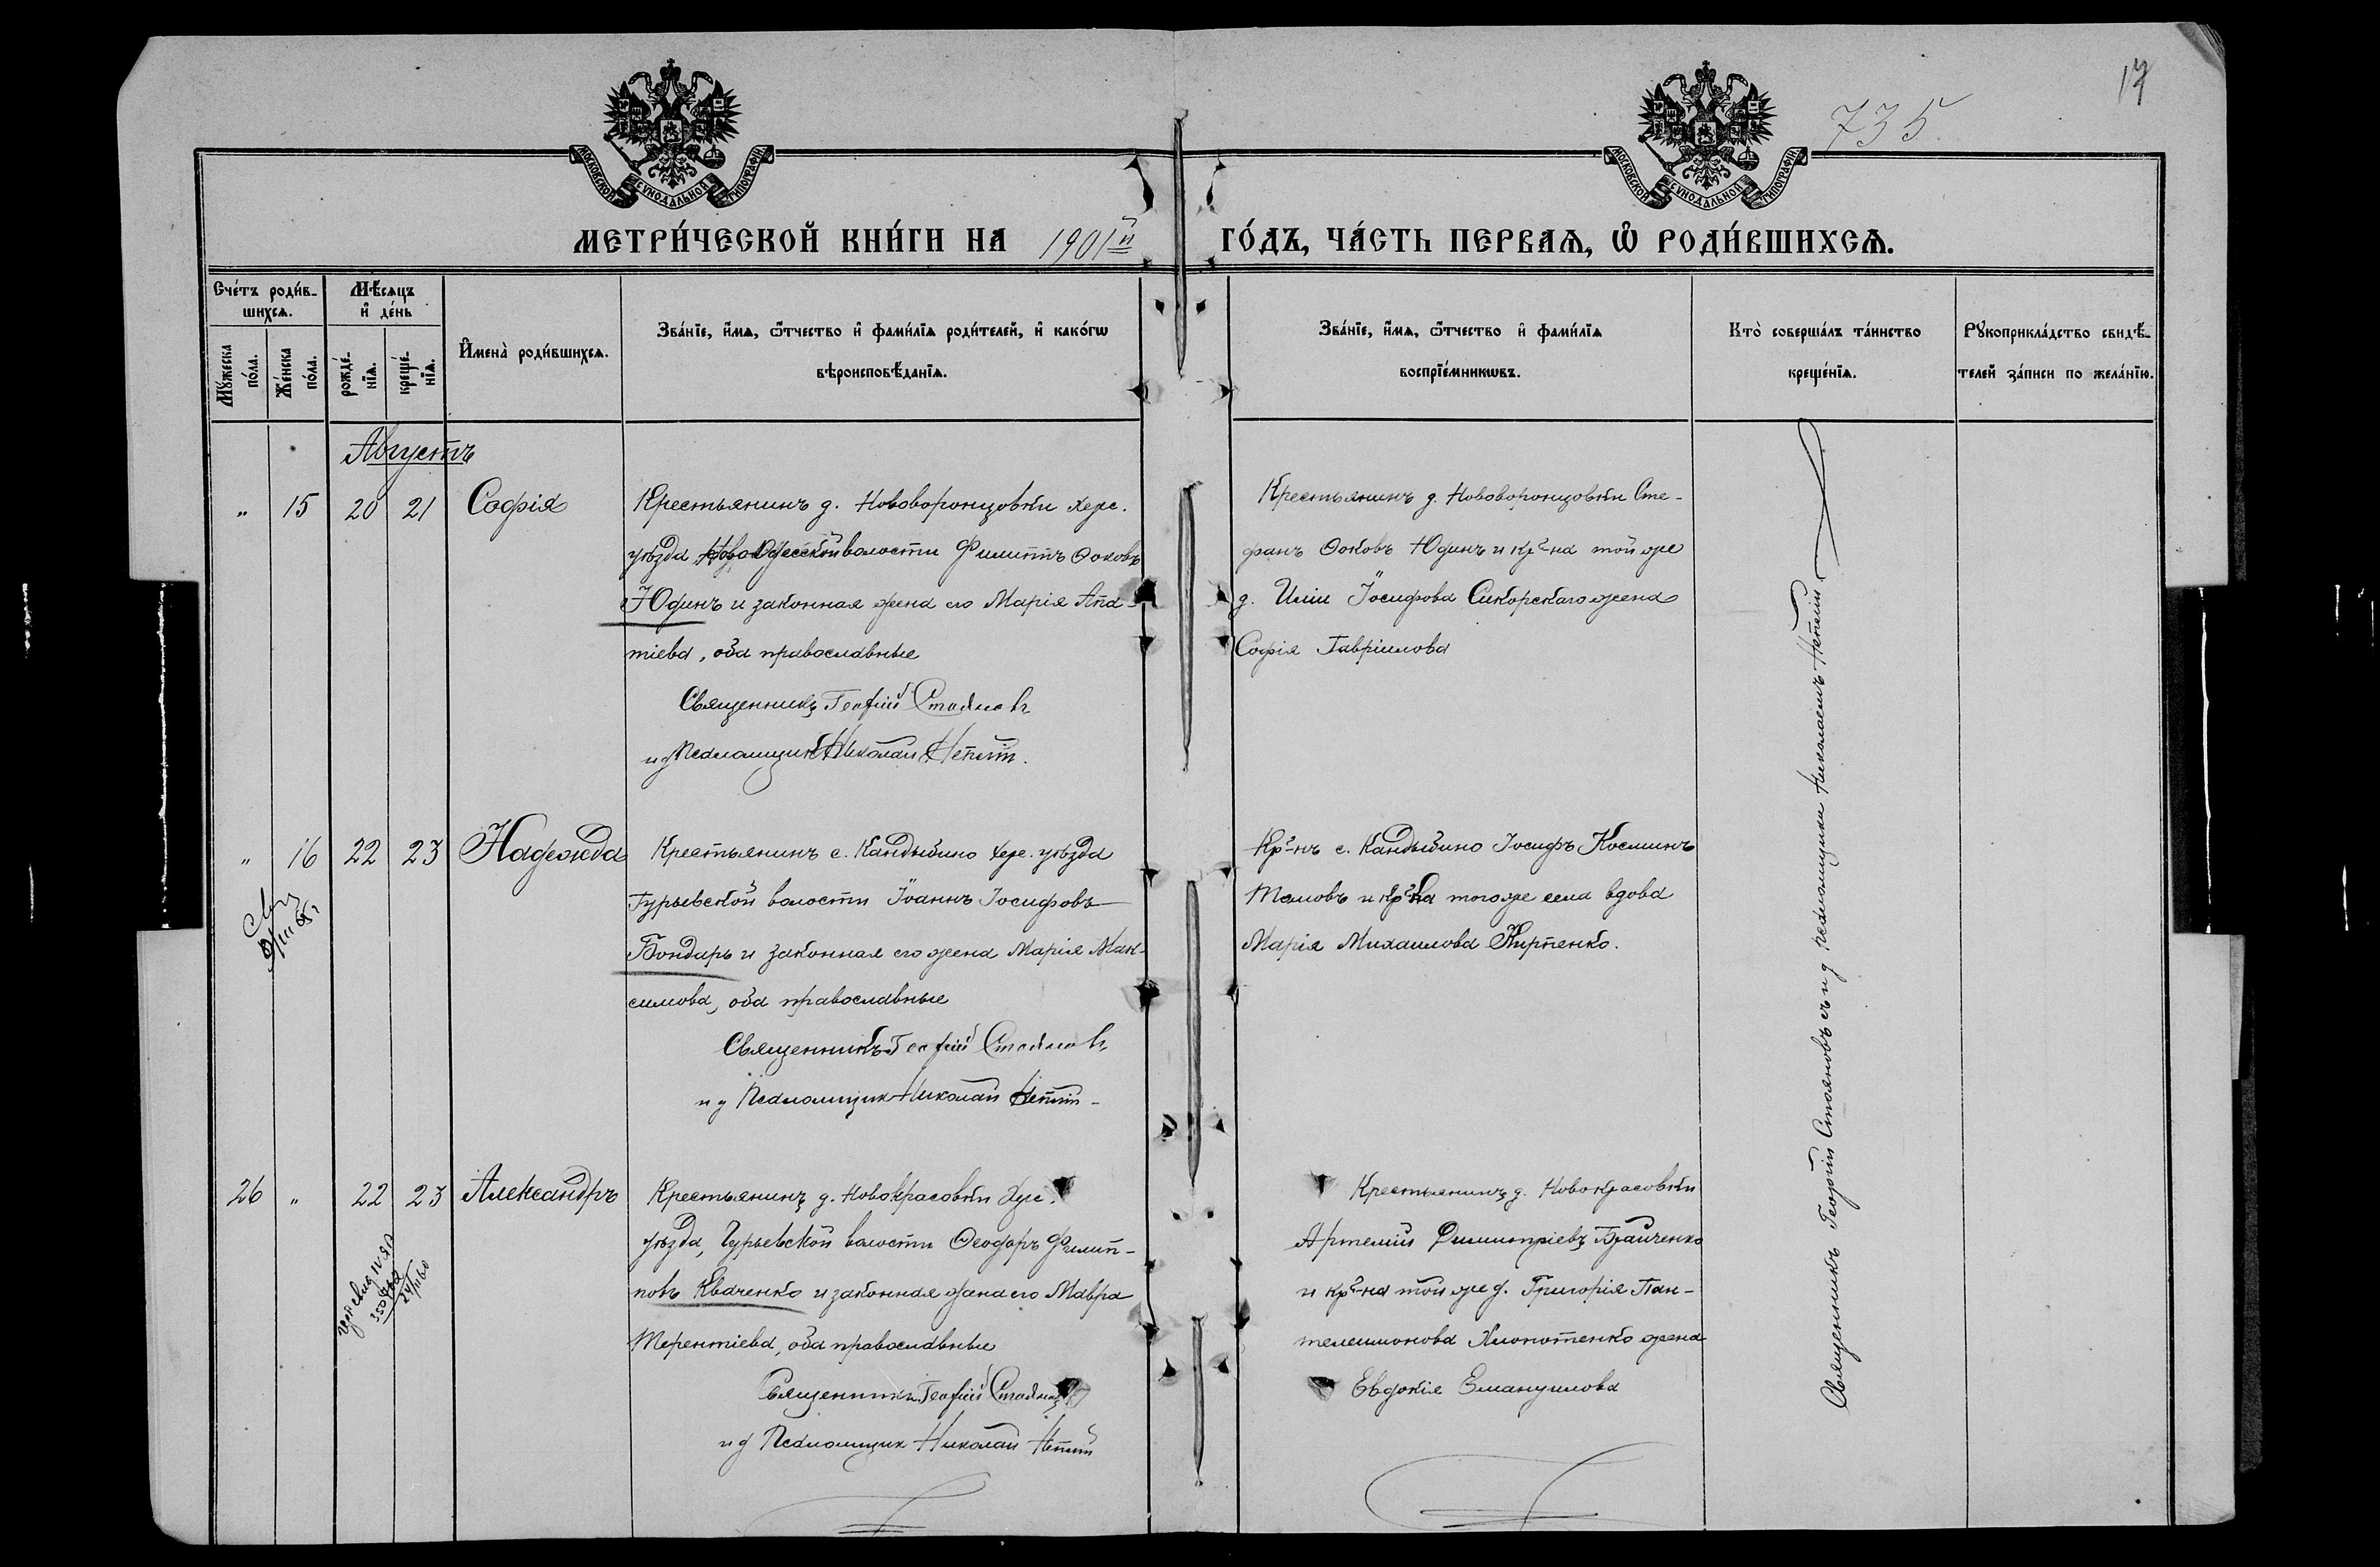 17
735
МОСКОВСКОЙ СѴНОДАЛЬНОЙ ТИПОГРАФІИ
МОСКОВСКОЙ СѴНОДАЛЬНОЙ ТИПОГРАФІИ
МЕТРИ́ЧЕСКОЙ КНИ́ГИ НА 1901й ГО́ДЪ, ЧА́СТЬ ПЕРВАѦ, Ѽ РОДИ́ВШИХСѦ.
Сче́тъ роди́в-
шихсѧ.
Мꙋ́жеска
по́ла.
Же́нска
по́ла.
Мѣ́сѧцъ
и҆ де́нь
рожде́-
нїѧ.
креще́-
нїѧ.
И҆мена̀ роди́вшихсѧ.
Зва́нїе, и҆́мѧ, ѻ҆́тчество и҆ фами́лїѧ роди́телей, и҆ како́гѡ
вѣроисповѣ́данїѧ.
Зва́нїе, и҆́мѧ, ѻ҆́тчество и҆ фами́лїѧ
воспрїе́мникѡвъ.
Кто̀ соверша́лъ та́инство
креще́нїѧ.
Рꙋкоприкла́дство свидѣ́-
телей за́писи по жела́нїю.
Августъ
" 15 20 21 Софія
Крестьянинъ д. Нововоронцовки Херс.
уѣзда Ново Одесской волости Филиппъ Ѳоковъ
Юдинъ и законная жена его Марія Апа-
тіева, оба православные
Священникъ Георгій Стояновъ
и д Псаломщик Николай Непеиш.
Крестьянинъ д. Нововоронцовки Сте-
фанъ Ѳоковъ Юдинъ и кр-на той же
д. Иліи Іосифова Сикорскаго жена
Софія Гавріилова
" 16 22 23 Надежда
Крестьянинъ с. Кандыбино Херс. уѣзда
Гурьевской волости Іоаннъ Іосифовъ
Бондарь и законная его жена Марія Мак-
симова, оба православные
Священникъ Георгій Стояновъ
и д Псаломщик Николай
Кр-нъ с. Кандыбино Іосифъ Косминъ
и кр-ка того же села вдова
Марія Михаилова
26 " 22 23 Александръ
Крестьянинъ д. Новокрасовки Херс.
уѣзда, Гурьевской волости Ѳеодоръ Филип-
повъ Кваченко и законная жена его Мавра
Терентіева, оба православные
Священникъ Георгій Стояновъ
и д Псаломщик Николай
24/II 60
Крестьянинъ д. Новокрасовки
Артемій Димитріевъ
и кр-на той же д. Григорія Пан-
телеимонова Хлопотенко жена
Евдокія Емануилова
Священникъ Георгій Стояновъ съ и д псаломщика Николаемъ